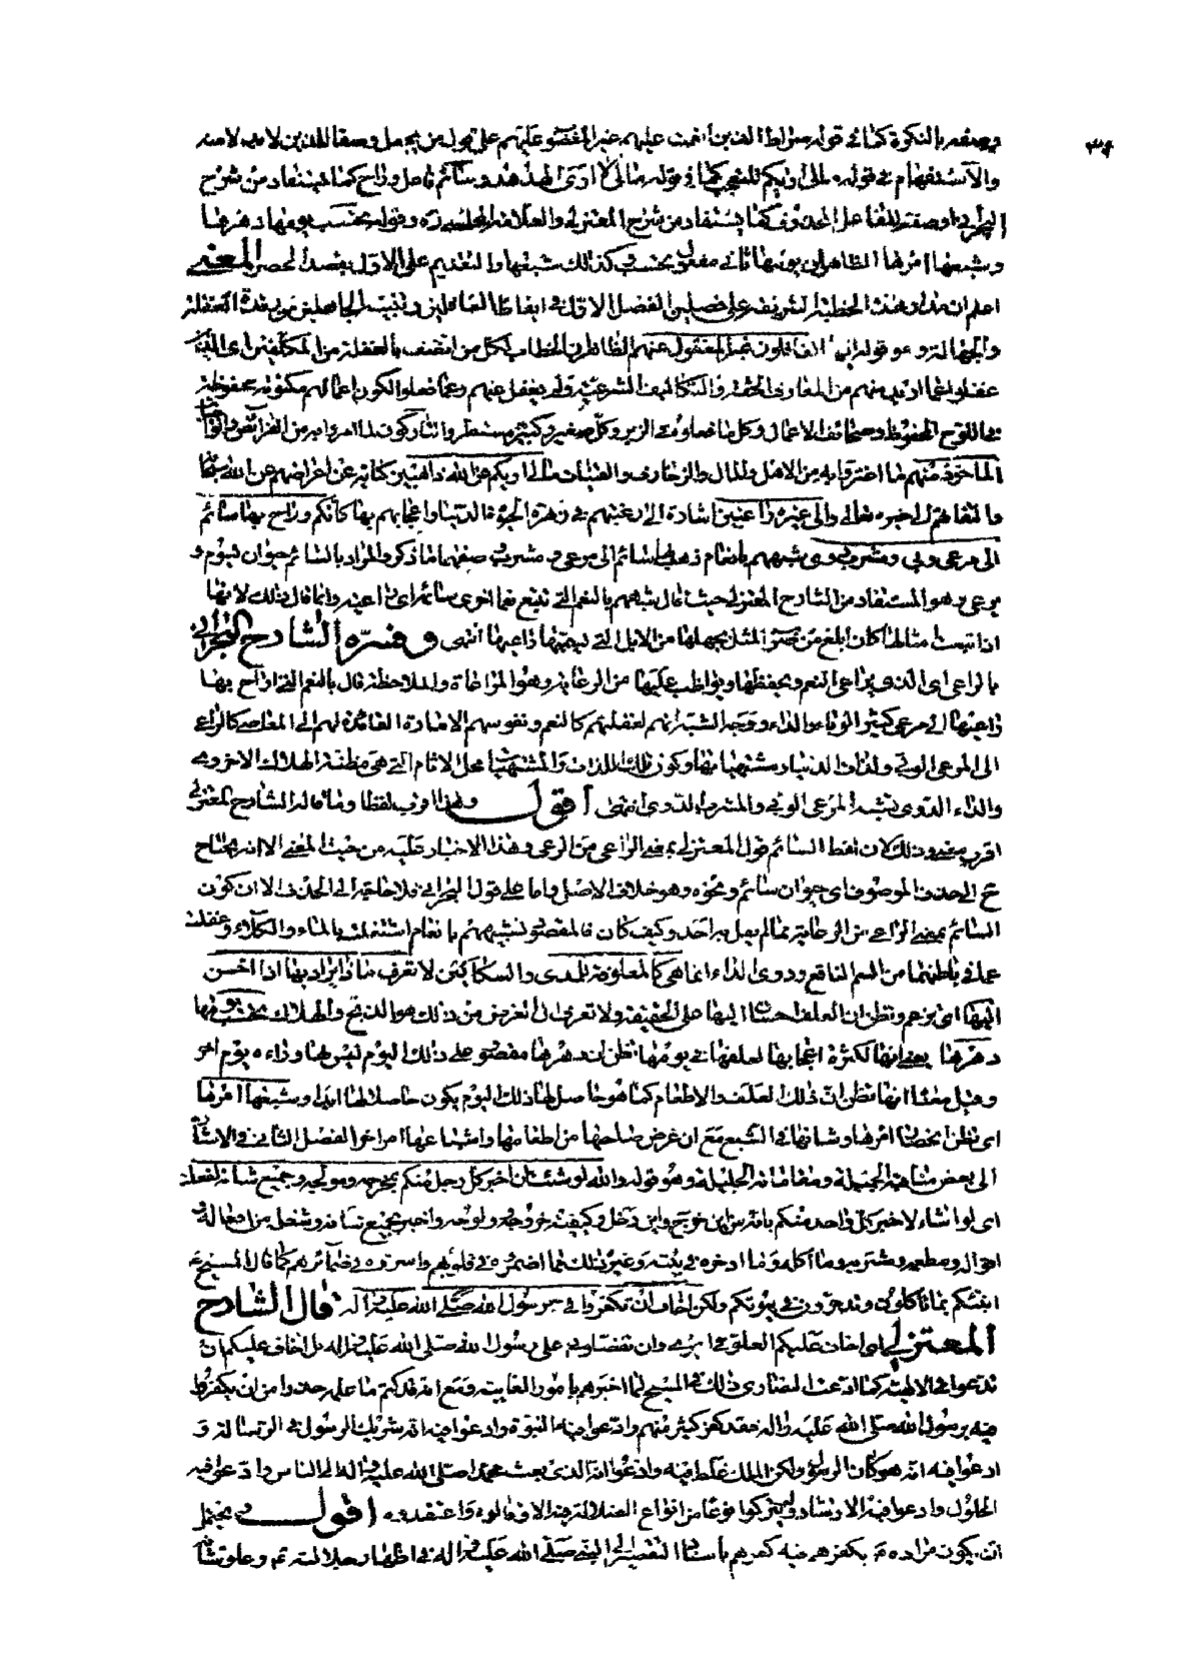 وصفه بالنكرة كما في قوله صراط الذين أنعمت عليهم غير المغضوب عليهم على قول من يجعل وصفا للذين لا بدلا منه
والاستفهام في قوله مالي اريكم للتعجب كما في قوله مالي لا ارى الهدهد وسائم فاعل اراح كما يستفاد من شرح
البحراني او صفة للفاعل المحذوف كما يستفاد من شرح المعتزلي والعلامة المجلسي ره وقوله تحسب يومها دهرها
وشبعها امرها الظاهر ان يومها ثاني مفعولي تحسب وكذلك شبعها والتقديم على الاول بقصد الحصر المعنى
اعلم ان مدار هذه الخطبة الشريفة على فصلين الفصل الاول في ايقاظ الغافلين وتنبيه الجاهلين من رقدة الغفلة
والجهالة وهو قوله ايها الغافلون غير المغفول عنهم الظاهر ان الخطاب لكل من اتصف بالغفلة من المكلفين اى الذين
غفلوا عما اريد منهم من المعارف الحقة والتكاليف الشرعية ولم يغفل عنهم وعما فعلوا لكون اعمالهم مكتوبة محفوظة
في اللوح المحفوظ وصحائف الاعمال وكل ما فعلوه في الزبر وكل صغير وكبير مستطر والتاركون لما امروا به من الفرائض والواجبات
المأخوذ منهم ما اغتروا به من الاهل والمال والزخارف والقينات مالي اريكم عن الله ذاهبين كناية عن اعراضهم عن الله سبحانه
والتفاتهم الى غيره تعالى والى غيره راغبين اشارة الى رغبتهم في زهرة الحيوة الدنيا واعجابهم بها كانكم نعم اراح بها سائم
الى مرعى وبى ومشرب دوى شبههم بانعام ذهب بها سائم الى مرعى ومشرب صفتهما ما ذكر والمراد بالسائم حيوان يسوم و
يرعى وهو المستفاد من الشارح المعتزلي حيث قال شبههم بالنعم التي تتبع نعما اخرى سائمة اى راعية وانما قال ذلك لانها
اذا تبعت امثالها كان ابلغ في ضرب المثل بجهلها من الابل التي يسيمها راعيها انتهى وفسره الشارح البحراني
بالراعي اى الذى يراعى النعم ويحفظها ويواظب عليها من الرعاية وهو المراعاة والملاحظة قال بالنعم التي اراح بها
راعيها الى مرعى كثير الوباء والداء ووجه الشبه انهم لغفلتهم كالنعم ونفوسهم الامارة القائدة لهم الى المعاصى كالراعي
الى المرعى الوبي ولذات الدنيا ومشتهياتها وكون تلك اللذات والمشتهيات محل الاثام التي هي مظنة الهلاك الاخروى
والداء الدوى يشبه المرعى الوبي والمشرب الدوى انتهى اقول وهذا اقرب لفظا وما قاله الشارح المعتزلي
اقرب معنى وذلك لان لفظ السائم على قول المعتزلي بمعنى الراعى من الرعى وهذا لا غبار عليه من حيث المعنى الا انه يحتاج
ح الى حذف الموصوف اى حيوان سائم ونحوه وهو خلاف الاصل واما على قول البحراني فلا حاجة الى الحذف الا ان كون
السائم بمعنى الراعي من الرعاية مما لم يقل به احد وكيف كان فالمقصود تشبيههم بانعام اشتغلت بالماء والكلاء وغفلت
عما في باطنهما من السم الناقع ودوى الداء انما هي كالمعلوفة للمدى والسكاكين لا تعرف ماذا يراد بها اذا احسن
اليها اى تزعم وتظن ان العلف احسانا اليها على الحقيقة ولا تعرف ان الغرض من ذلك هو الذبح والهلاك تحسب يومها
دهرها يعنى انها لكثرة اعجابها بعلفها في يومها تظن ان دهرها مقصور على ذلك اليوم ليس لها وراءه يوم اخر
وقيل معناه انها تظن ان ذلك العلف والاطعام كما هو حاصل لها ذلك اليوم يكون حاصلا لها ابدا وشبعها امرها
اى تظن انحصار امرها وشانها في الشبع مع ان غرض صاحبها من اطعامها واشباعها امر اخر الفصل الثاني في الاشارة
الى بعض مناقبه الجميلة ومقاماته الجليلة وهو قوله والله لو شئت ان اخبر كل رجل منكم بمخرجه ومولجه وجميع شانه لفعلت
اى لو اشاء لاخبر كل واحد منكم بانه من اين خرج واين دخل وكيفية خروجه وولوجه واخبر بجميع شانه وشغله من افعاله و
اقواله ومطعمه ومشربه وما اكله وما ادخره في بيته وغير ذلك مما اضمروه في قلوبهم واسروه في ضمائرهم كما قال المسيح ع
انبئكم بما تاكلون وتدخرون في بيوتكم ولكن اخاف ان تكفروا في برسول الله صلى الله عليه واله قال الشارح
المعتزلي اى اخاف عليكم الغلو في امرى وان تفضلوني على رسول الله صلى الله عليه واله بل اخاف عليكم ان
تدعوا في الالهية كما ادعت النصارى ذلك في المسيح لما اخبرهم بالامور الغايبة ومع انه قد كتم ما علمه حذرا من ان يكفروا
فيه برسول الله صلى الله عليه واله فقد كفر كثير منهم وادعوا فيه النبوة وادعوا فيه انه شريك الرسول في الرسالة و
ادعوا فيه انه هو كان الرسول ولكن الملك غلط فيه وادعوا انه الذى بعث محمدا صلى الله عليه واله الى الناس وادعوا فيه
الحلول وادعوا فيه الاتحاد ولم يتركوا نوعا من انواع الضلالة فيه الا وقالوه واعتقدوه اقول ويحتمل
ان يكون مراده ع بكفرهم فيه كفرهم باسناد التقصير الى النبي صلى الله عليه واله في اظهار جلالته ع وعلو شانه